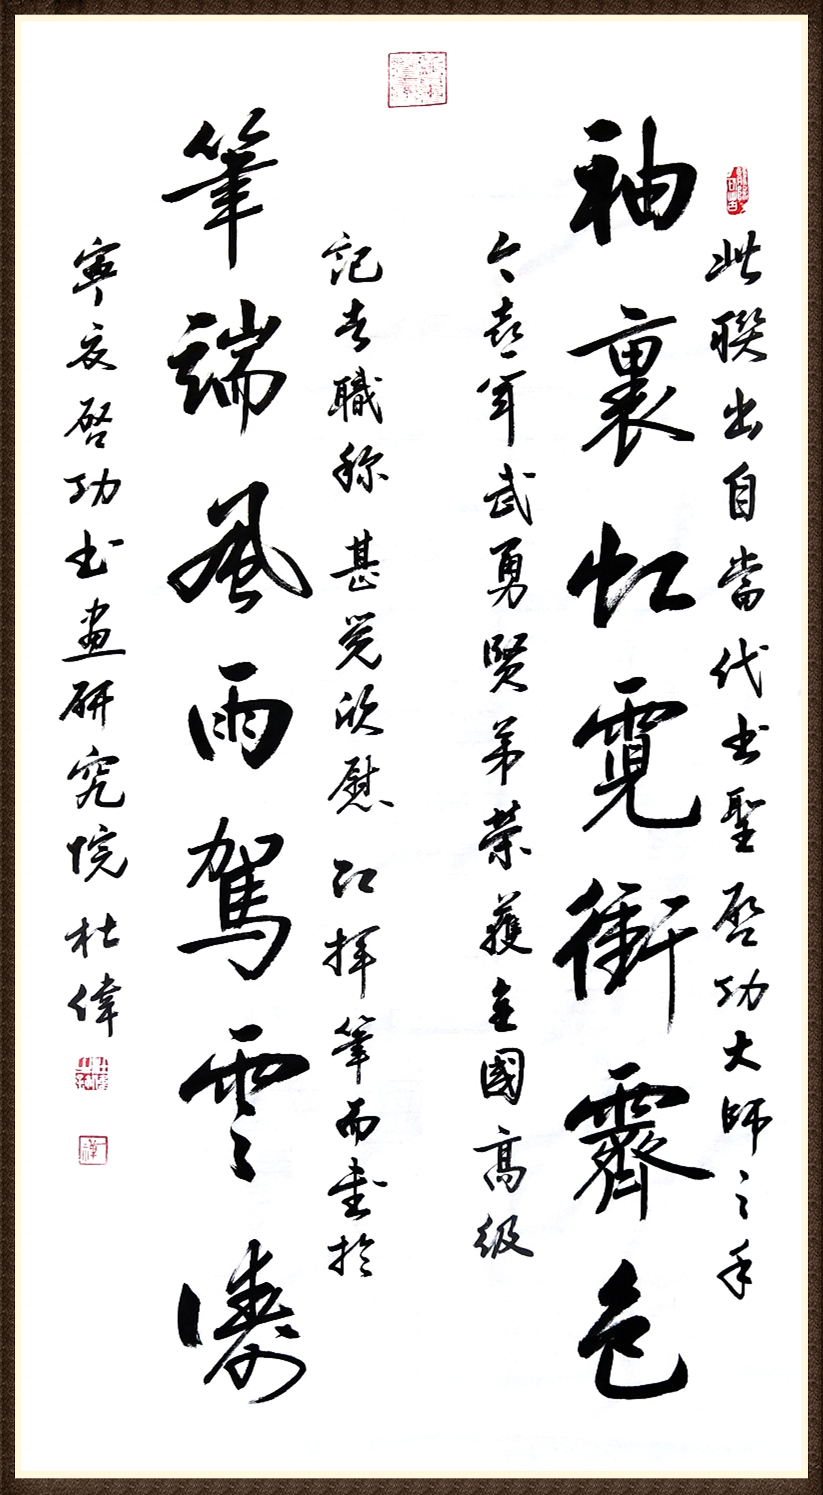 此聯出自當代书聖啓功大師之手
袖裏虹霓衝霽色
今喜軍武勇賢弟荣獲全國高级
記者職称甚觉欣慰揮筆而書於
筆端風雨駕雲濤
寧夏啓功书畫研究院杜偉